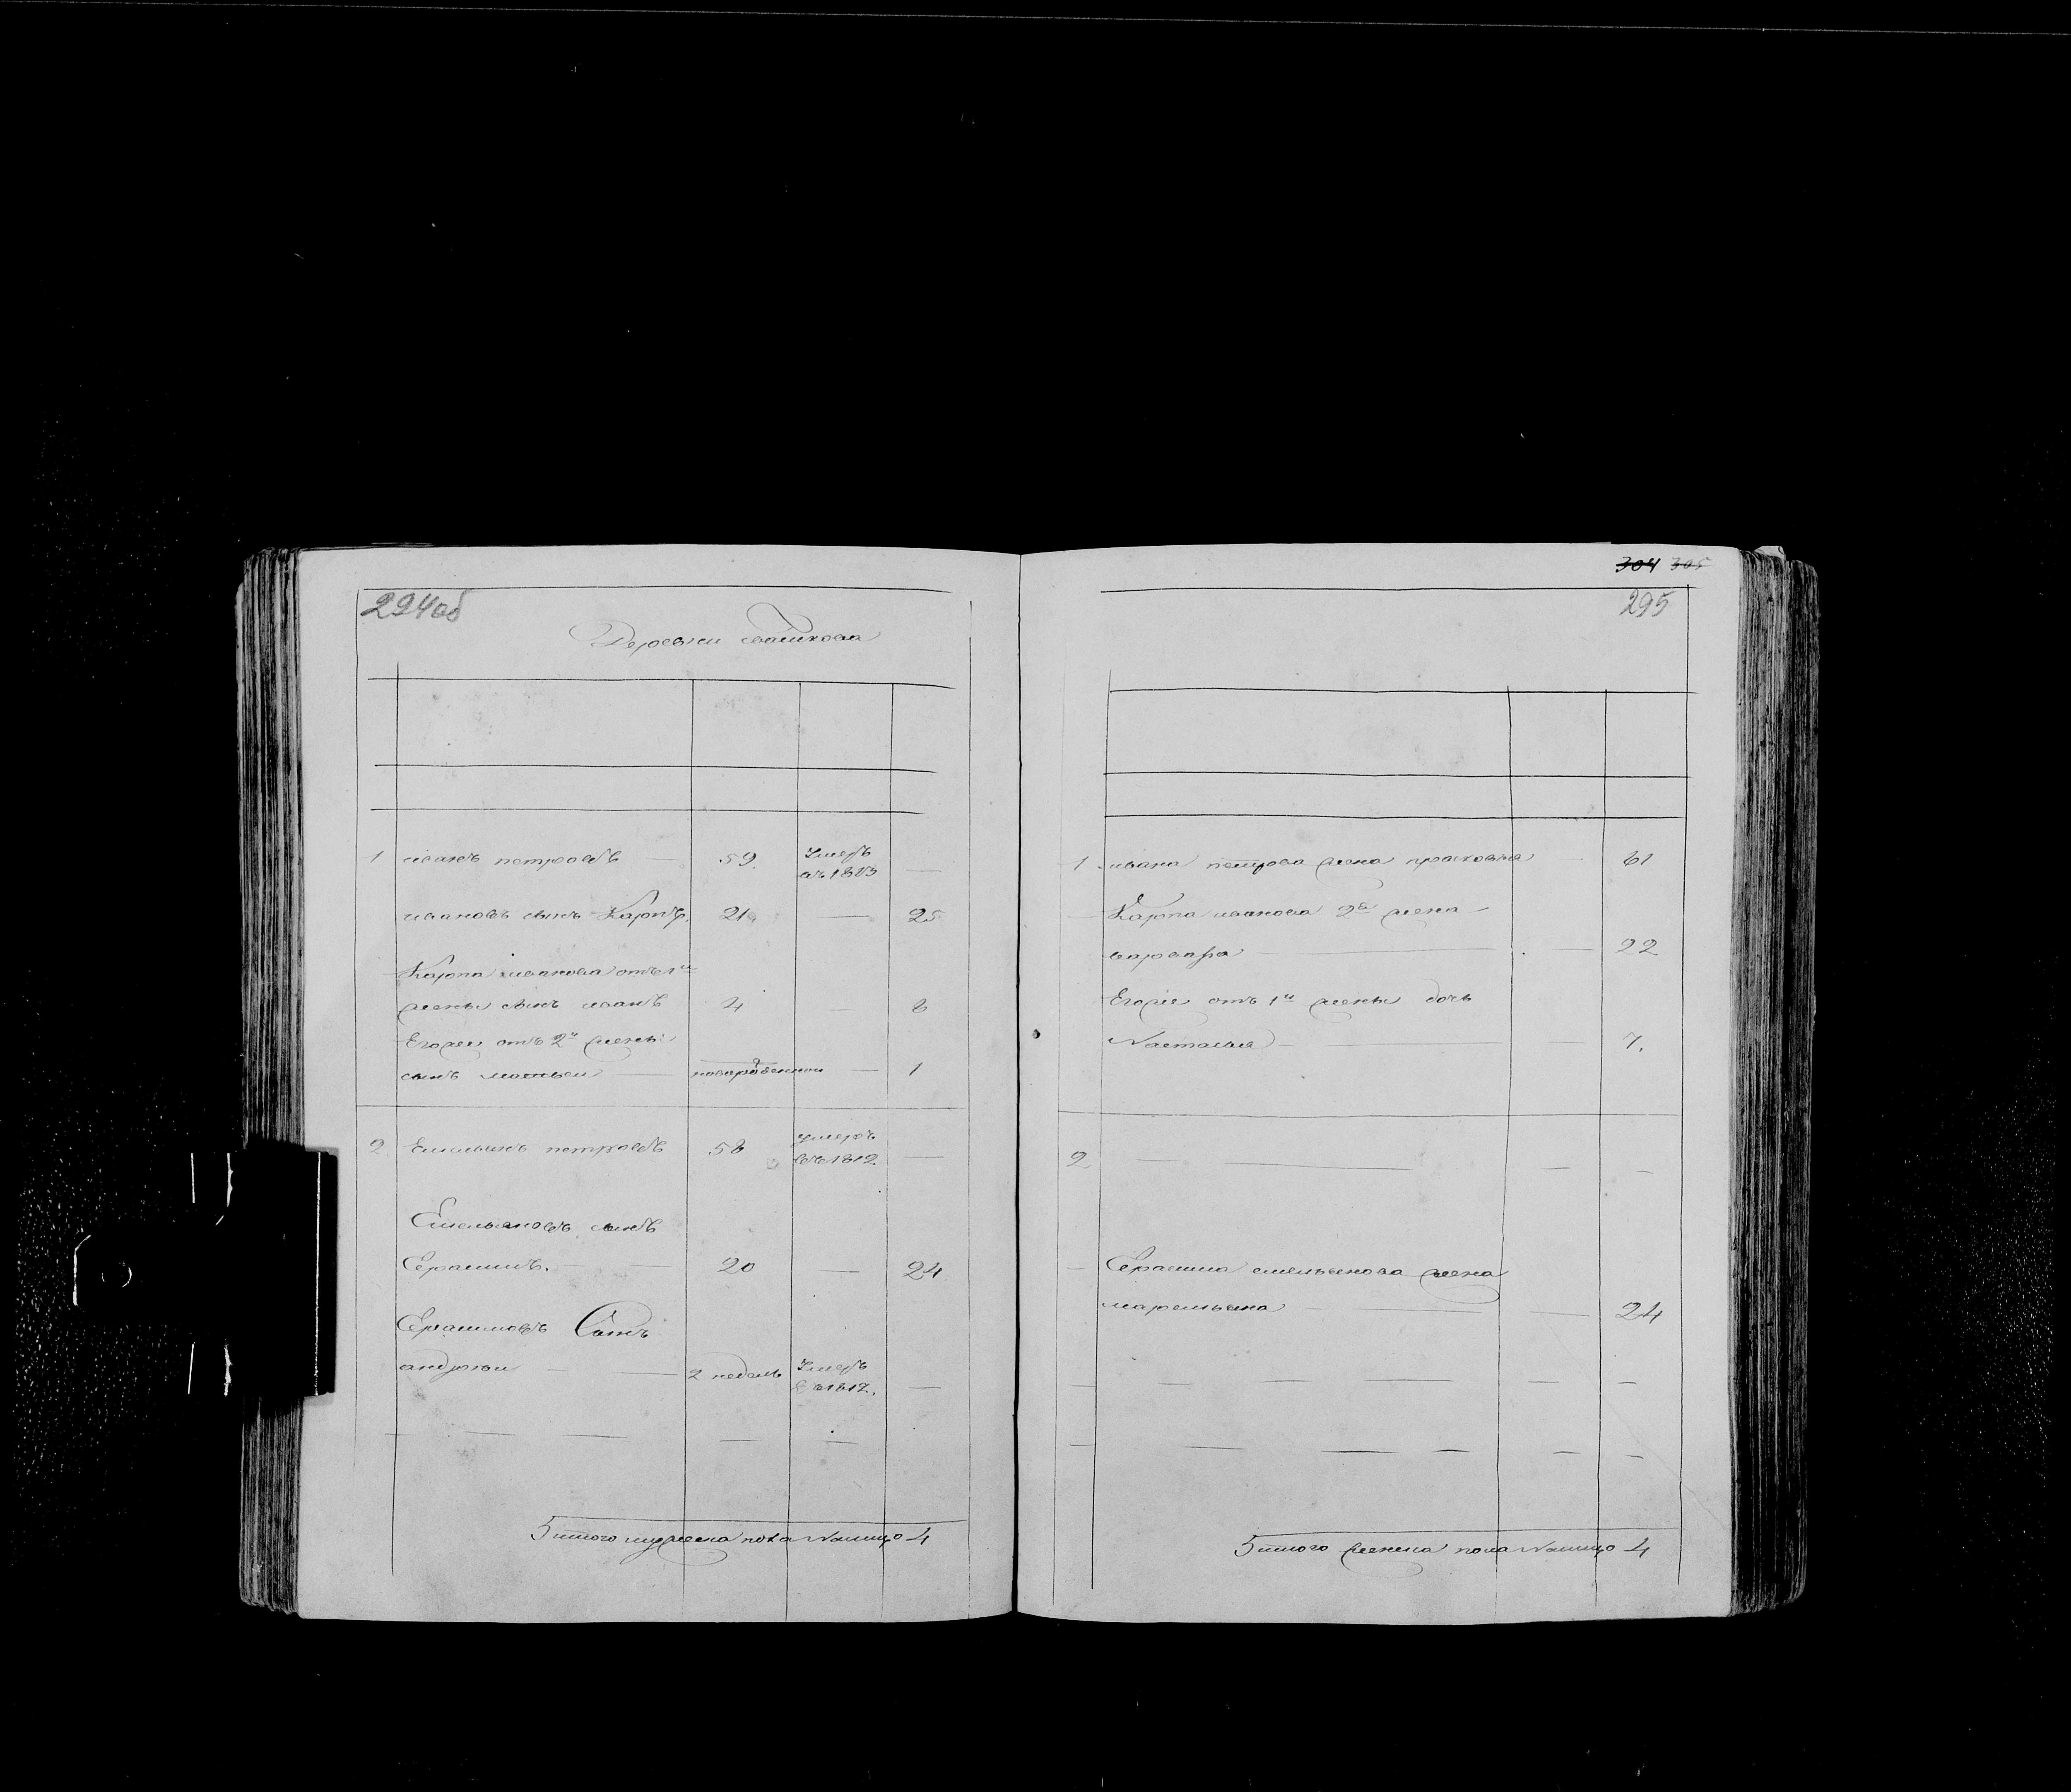 294об
Деревни
1 иванъ петровъ 59 Умеръ
въ 1813
ивановъ сынъ Карпъ 21 25
Карпа иванова отъ 1й
жены сынъ иванъ 4 8
Егоже отъ 2й жены
сынъ матвеи новорожденнои 1
2 Емельянъ петровъ 58 умеръ
въ 1812
Емельяновъ сынъ
Герасимъ. 20 24
Герасимовъ Сынъ
андреи 2 недель Умеръ
въ 1812.
итого мужеска пола налицо 4
304 305
295
1 ивана петрова жена прасковья 61
Карпа иванова 2я жена
варвара 22
Егоже отъ 1й жены дочь
Настасья 7.
2
Герасима емельянова жена
маремьяна 24
итого женска пола налицо 4